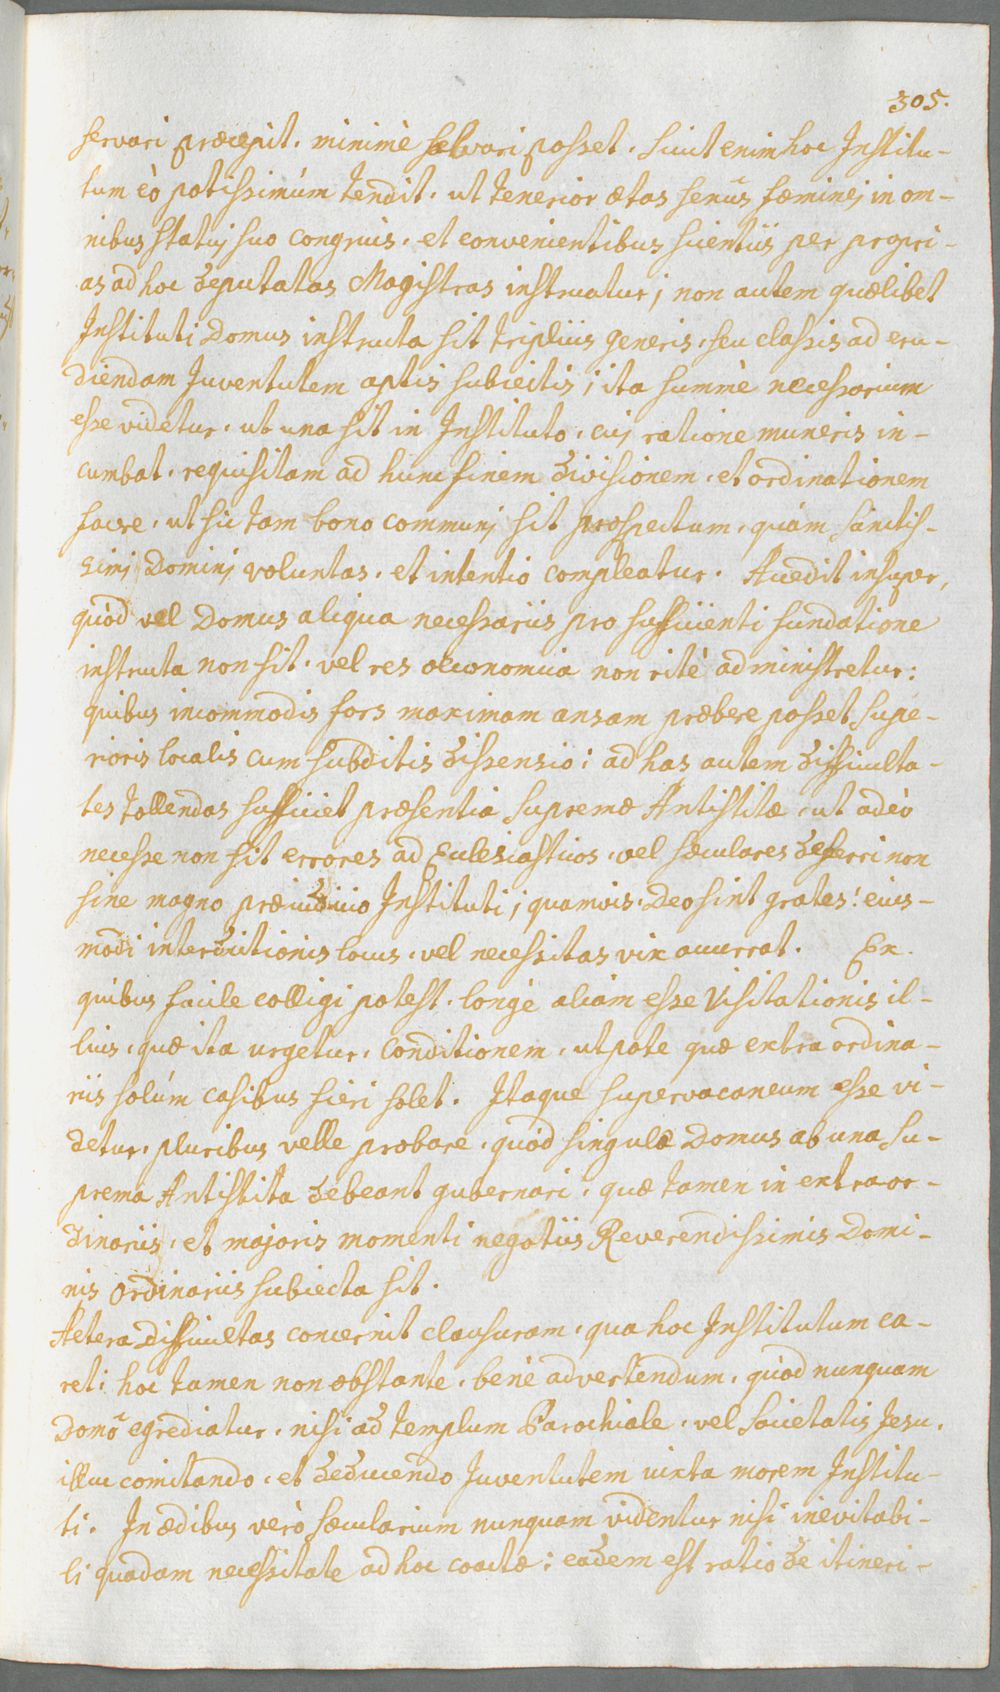 305.
servari præcepit, minimè salvari posset. Sicut enim hoc Institu-
tum eò potissimùm tendit, ut tenerior ætas sexûs fæminej in om-
nibus statuj suo congruis, et convenientibus scientiis per propri-
as ad hoc deputatas Magistras instruatur; non autem quælibet
Instituti Domus instructa sit triplicis generis, seu classis ad eru-
diendam Juventutem aptis subiectis; ita summè necessarium
esse videtur, ut una sit in Instituto, cuj ratione muneris in-
cumbat, requisitam ad hunc finem divisionem, et ordinationem
facere, ut sic tam bono communj sit prospectum, quàm Sanctis-
simj Dominj voluntas, et intentio compleatur. Accedit insuper,
quòd vel Domus aliqua necessariis pro sufficienti fundatione
instructa non sit, vel res œconomica non ritè administretur:
quibus incommodis fors maximam ansam præbere posset Supe-
rioris localis cum subditis dissensio; ad has autem difficulta-
tes tollendas sufficiet præsentia Supremæ Antistitæ, ut adeò
necesse non sit errores ad Ecclesiasticos, vel sæculares deferri non
sine magno præiudicio Instituti; quamvis, Deo sint grates! eius-
modi intercitionis locus, vel necessitas vix accurrat. Ex
quibus facile colligi potest, longè aliam esse Visitationis il-
lius, quæ ita urgetur, conditionem, utpote quæ extraordina-
riis solùm casibus fieri solet. Itaque supervacaneum esse vi-
detur, pluribus velle probare, quòd singulæ Domus ab una Su-
prema Antistita debeant gubernari, quæ tamen in extraor-
dinariis, et majoris momenti negotiis Reverendissimis Domi-
nis Ordinariis subiecta sit.
Altera difficultas concernit clausuram, qua hoc Institutum ca-
ret; hoc tamen non obstante, benè advertendum, quòd nunquam
Domô egrediatur, nisi ad templum Parochiale, vel Societatis Jesu,
illuc comitando, et deducendo Juventutem iuxta morem Institu-
ti. In ædibus verò sæcularium nunquam videntur nisi inevitabi-
li quadam necessitate ad hoc coactæ; eadem est ratio de itineri-